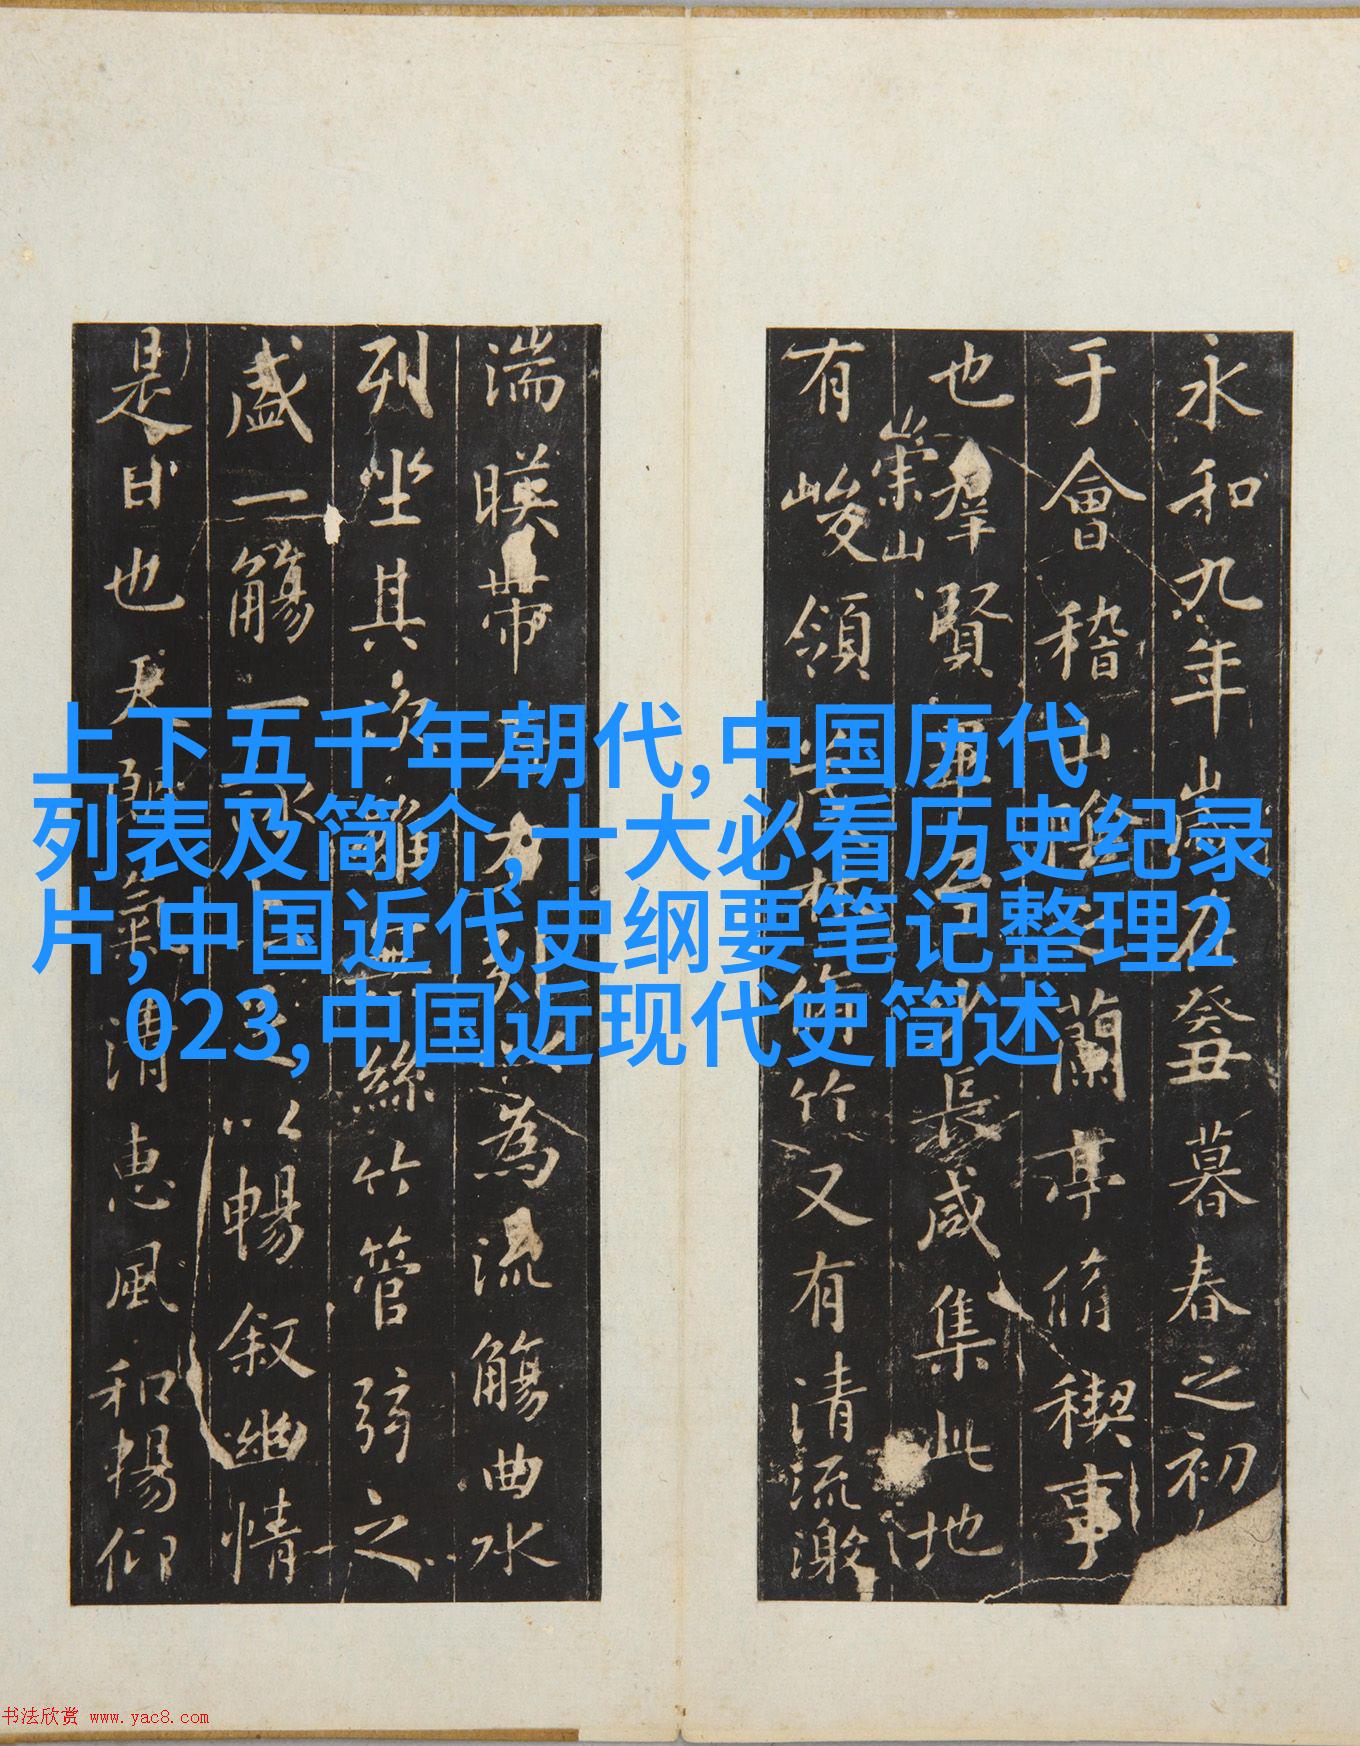 永和九年歲在癸丑暮春之初
于會稽山陰之蘭亭脩稧事
也群賢畢至少長咸集此地
有崇山峻領茂林脩竹又有清流激
湍暎帶左右引以為流觴曲水
列坐其次雖無絲竹管弦之
盛一觴一詠亦足以暢叙幽情
是日也天朗氣清惠風和暢仰
上下五千年朝代,中国历代
列表及简介,十大必看历史纪录
片,中国近代史纲要笔记整理2
023,中国近现代史简述
书法欣赏 www.yac8.com